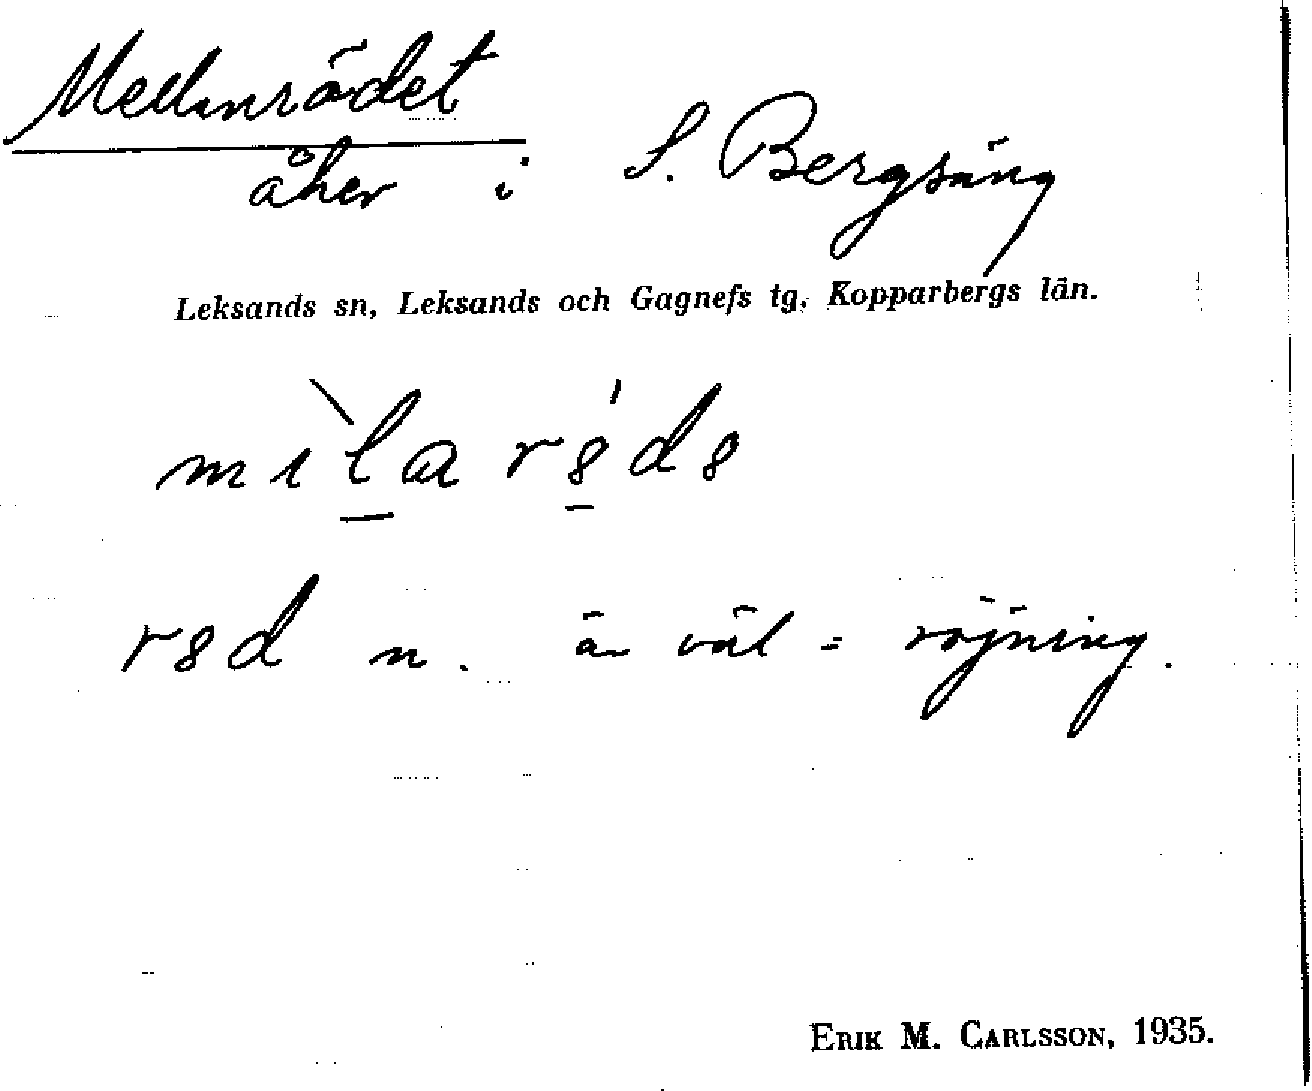 Mellanrödet
åker i S. Bergsäng
Leksands sn, Leksands och Gagnefs tg, Kopparbergs län.
rsd n. är väl = röjning.
ERIK M. CARLSSON, 1935.